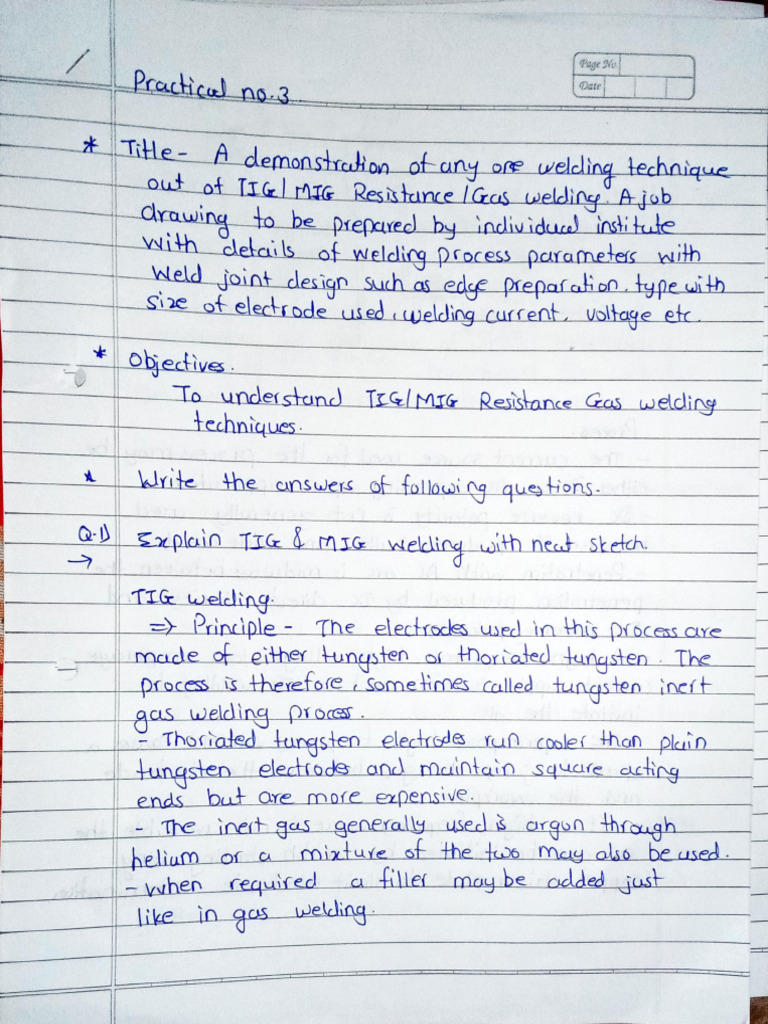 Page No.
Date
Practical no.3.
* Title - A demonstration of any one welding technique
out of TIG/MIG Resistance/Gas welding. A job
drawing to be prepared by individual institute
with details of welding process parameters with
weld joint design such as edge preparation, type with
size of electrode used, welding current, voltage etc.
* Objectives.
To understand TIG/MIG Resistance Gas welding
techniques.
* Write the answers of following questions.
Q.1) Explain TIG & MIG welding with neat sketch.
→ TIG welding.
⇒ Principle - The electrodes used in this process are
made of either tungsten or thoriated tungsten. The
process is therefore, sometimes called tungsten inert
gas welding process.
- Thoriated tungsten electrodes run cooler than plain
tungsten electrodes and maintain square acting
ends but are more expensive.
- The inert gas generally used is argon through
helium or a mixture of the two may also be used.
- When required a filler may be added just
like in gas welding.